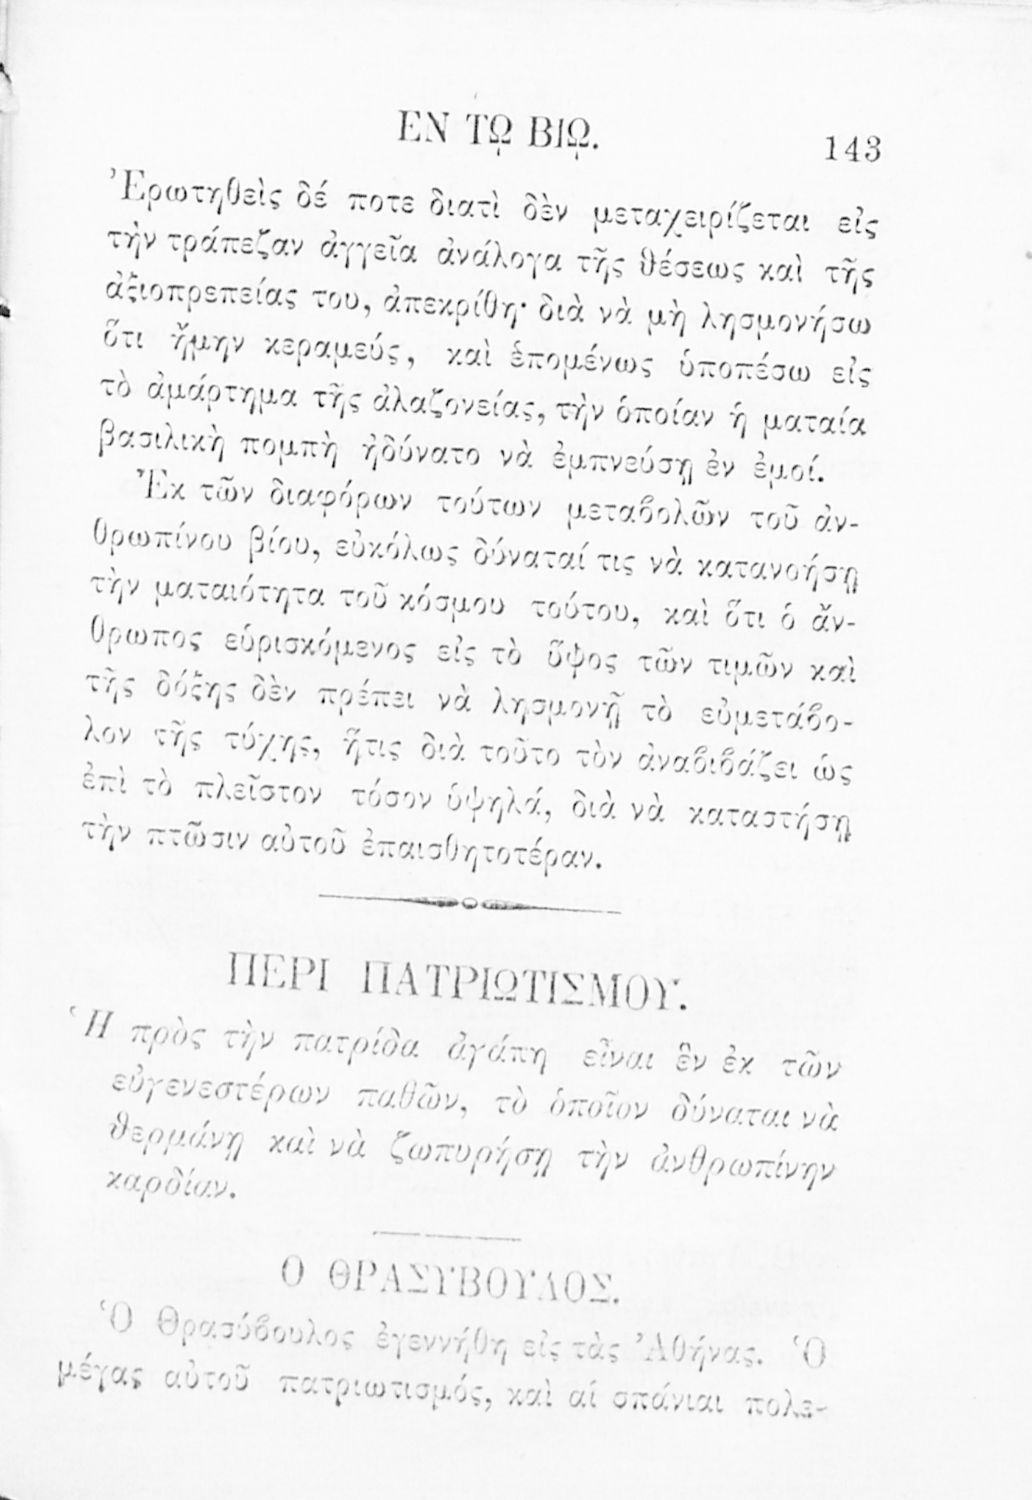 ΕΝ Τῼ ΒΙῼ.
143
Ἐρωτηθεὶς δέ ποτε διατὶ δὲν μεταχειρίζεται εἰς
τὴν τράπεζαν ἀγγεῖα ἀνάλογα τῆς θέσεως καὶ τῆς
ἀξιοπρεπείας του, ἀπεκρίθη· διὰ νὰ μὴ λησμονήσω
ὅτι ἤμην κεραμεύς, καὶ ἑπομένως ὑποπέσω εἰς
τὸ ἁμάρτημα τῆς ἀλαζονείας, τὴν ὁποίαν ἡ ματαία
βασιλικὴ πομπὴ ἠδύνατο νὰ ἐμπνεύσῃ ἐν ἐμοί.
Ἐκ τῶν διαφόρων τούτων μεταβολῶν τοῦ ἀν-
θρωπίνου βίου, εὐκόλως δύναταί τις νὰ κατανοήσῃ
τὴν ματαιότητα τοῦ κόσμου τούτου, καὶ ὅτι ὁ ἄν-
θρωπος εὑρισκόμενος εἰς τὸ ὕψος τῶν τιμῶν καὶ
τῆς δόξης δὲν πρέπει νὰ λησμονῇ τὸ εὐμετάβο-
λον τῆς τύχης, ἥτις διὰ τοῦτο τὸν ἀναβιβάζει ὡς
ἐπὶ τὸ πλεῖστον τόσον ὑψηλά, διὰ νὰ καταστήσῃ
τὴν πτῶσιν αὐτοῦ ἐπαισθητοτέραν.
ΠΕΡΙ ΠΑΤΡΙΩΤΙΣΜΟΥ.
Ἡ πρὸς τὴν πατρίδα ἀγάπη εἶναι ἓν ἐκ τῶν
εὐγενεστέρων παθῶν, τὸ ὁποῖον δύναται νὰ
θερμάνῃ καὶ νὰ ζωπυρήσῃ τὴν ἀνθρωπίνην
καρδίαν.
Ο ΘΡΑΣΥΒΟΥΛΟΣ.
Ὁ Θρασύβουλος ἐγεννήθη εἰς τὰς Ἀθήνας. Ὁ
μέγας αὐτοῦ πατριωτισμός, καὶ αἱ σπάνιαι πολε-